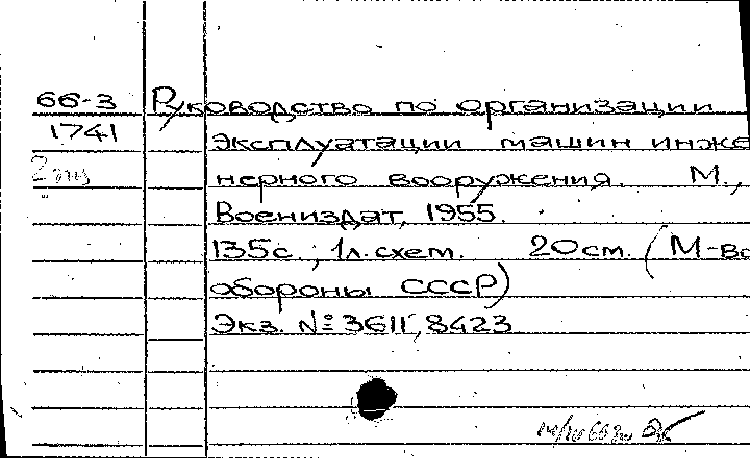 66-3 Руководство по организации
1741 эксплуатации машин инже
2 экз нерного вооружения. М.,
Воениздат, 1955.
135с.; 1л.схем. 20см. (М-во
обороны СССР)
Экз. №3611, 8423